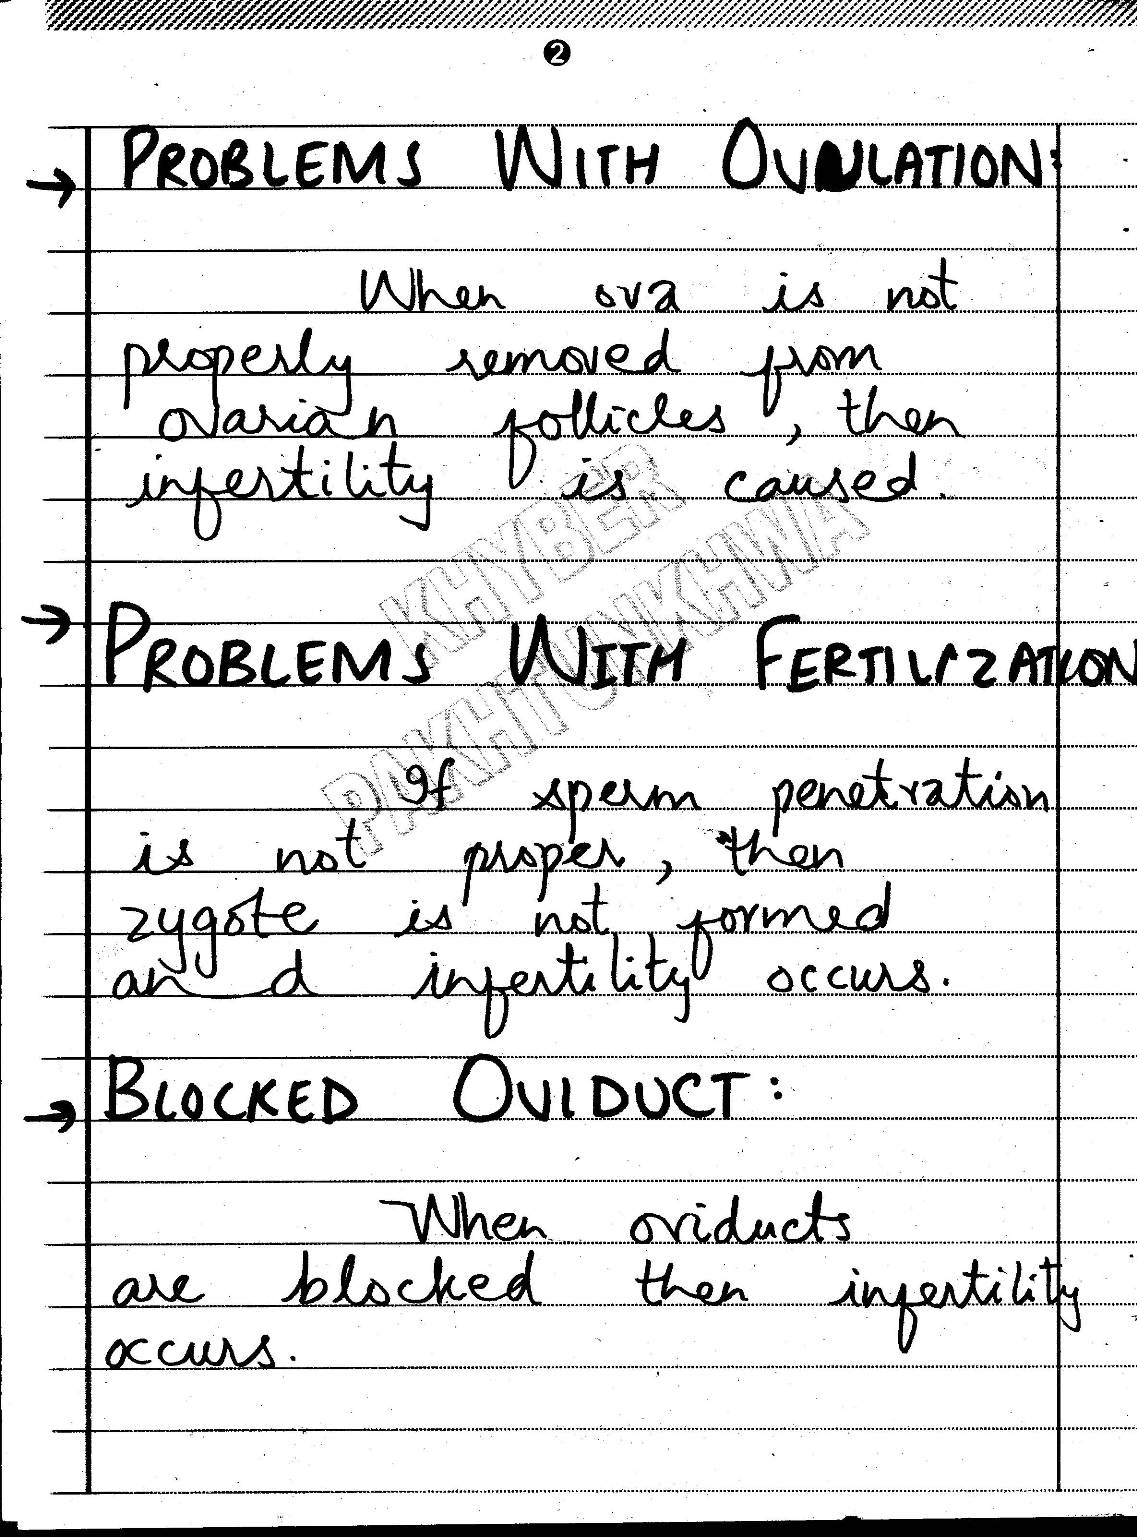 2
→ PROBLEMS WITH OVULATION:
When ova is not
properly removed from
ovarian follicles, then
infertility is caused.
KHYBER
PAKHTUNKHWA
→ PROBLEMS WITH FERTILIZATION
If sperm penetration
is not proper, then
zygote is not formed
and infertility occurs.
→ BLOCKED OVIDUCT:
When oviducts
are blocked then infertility
occurs.